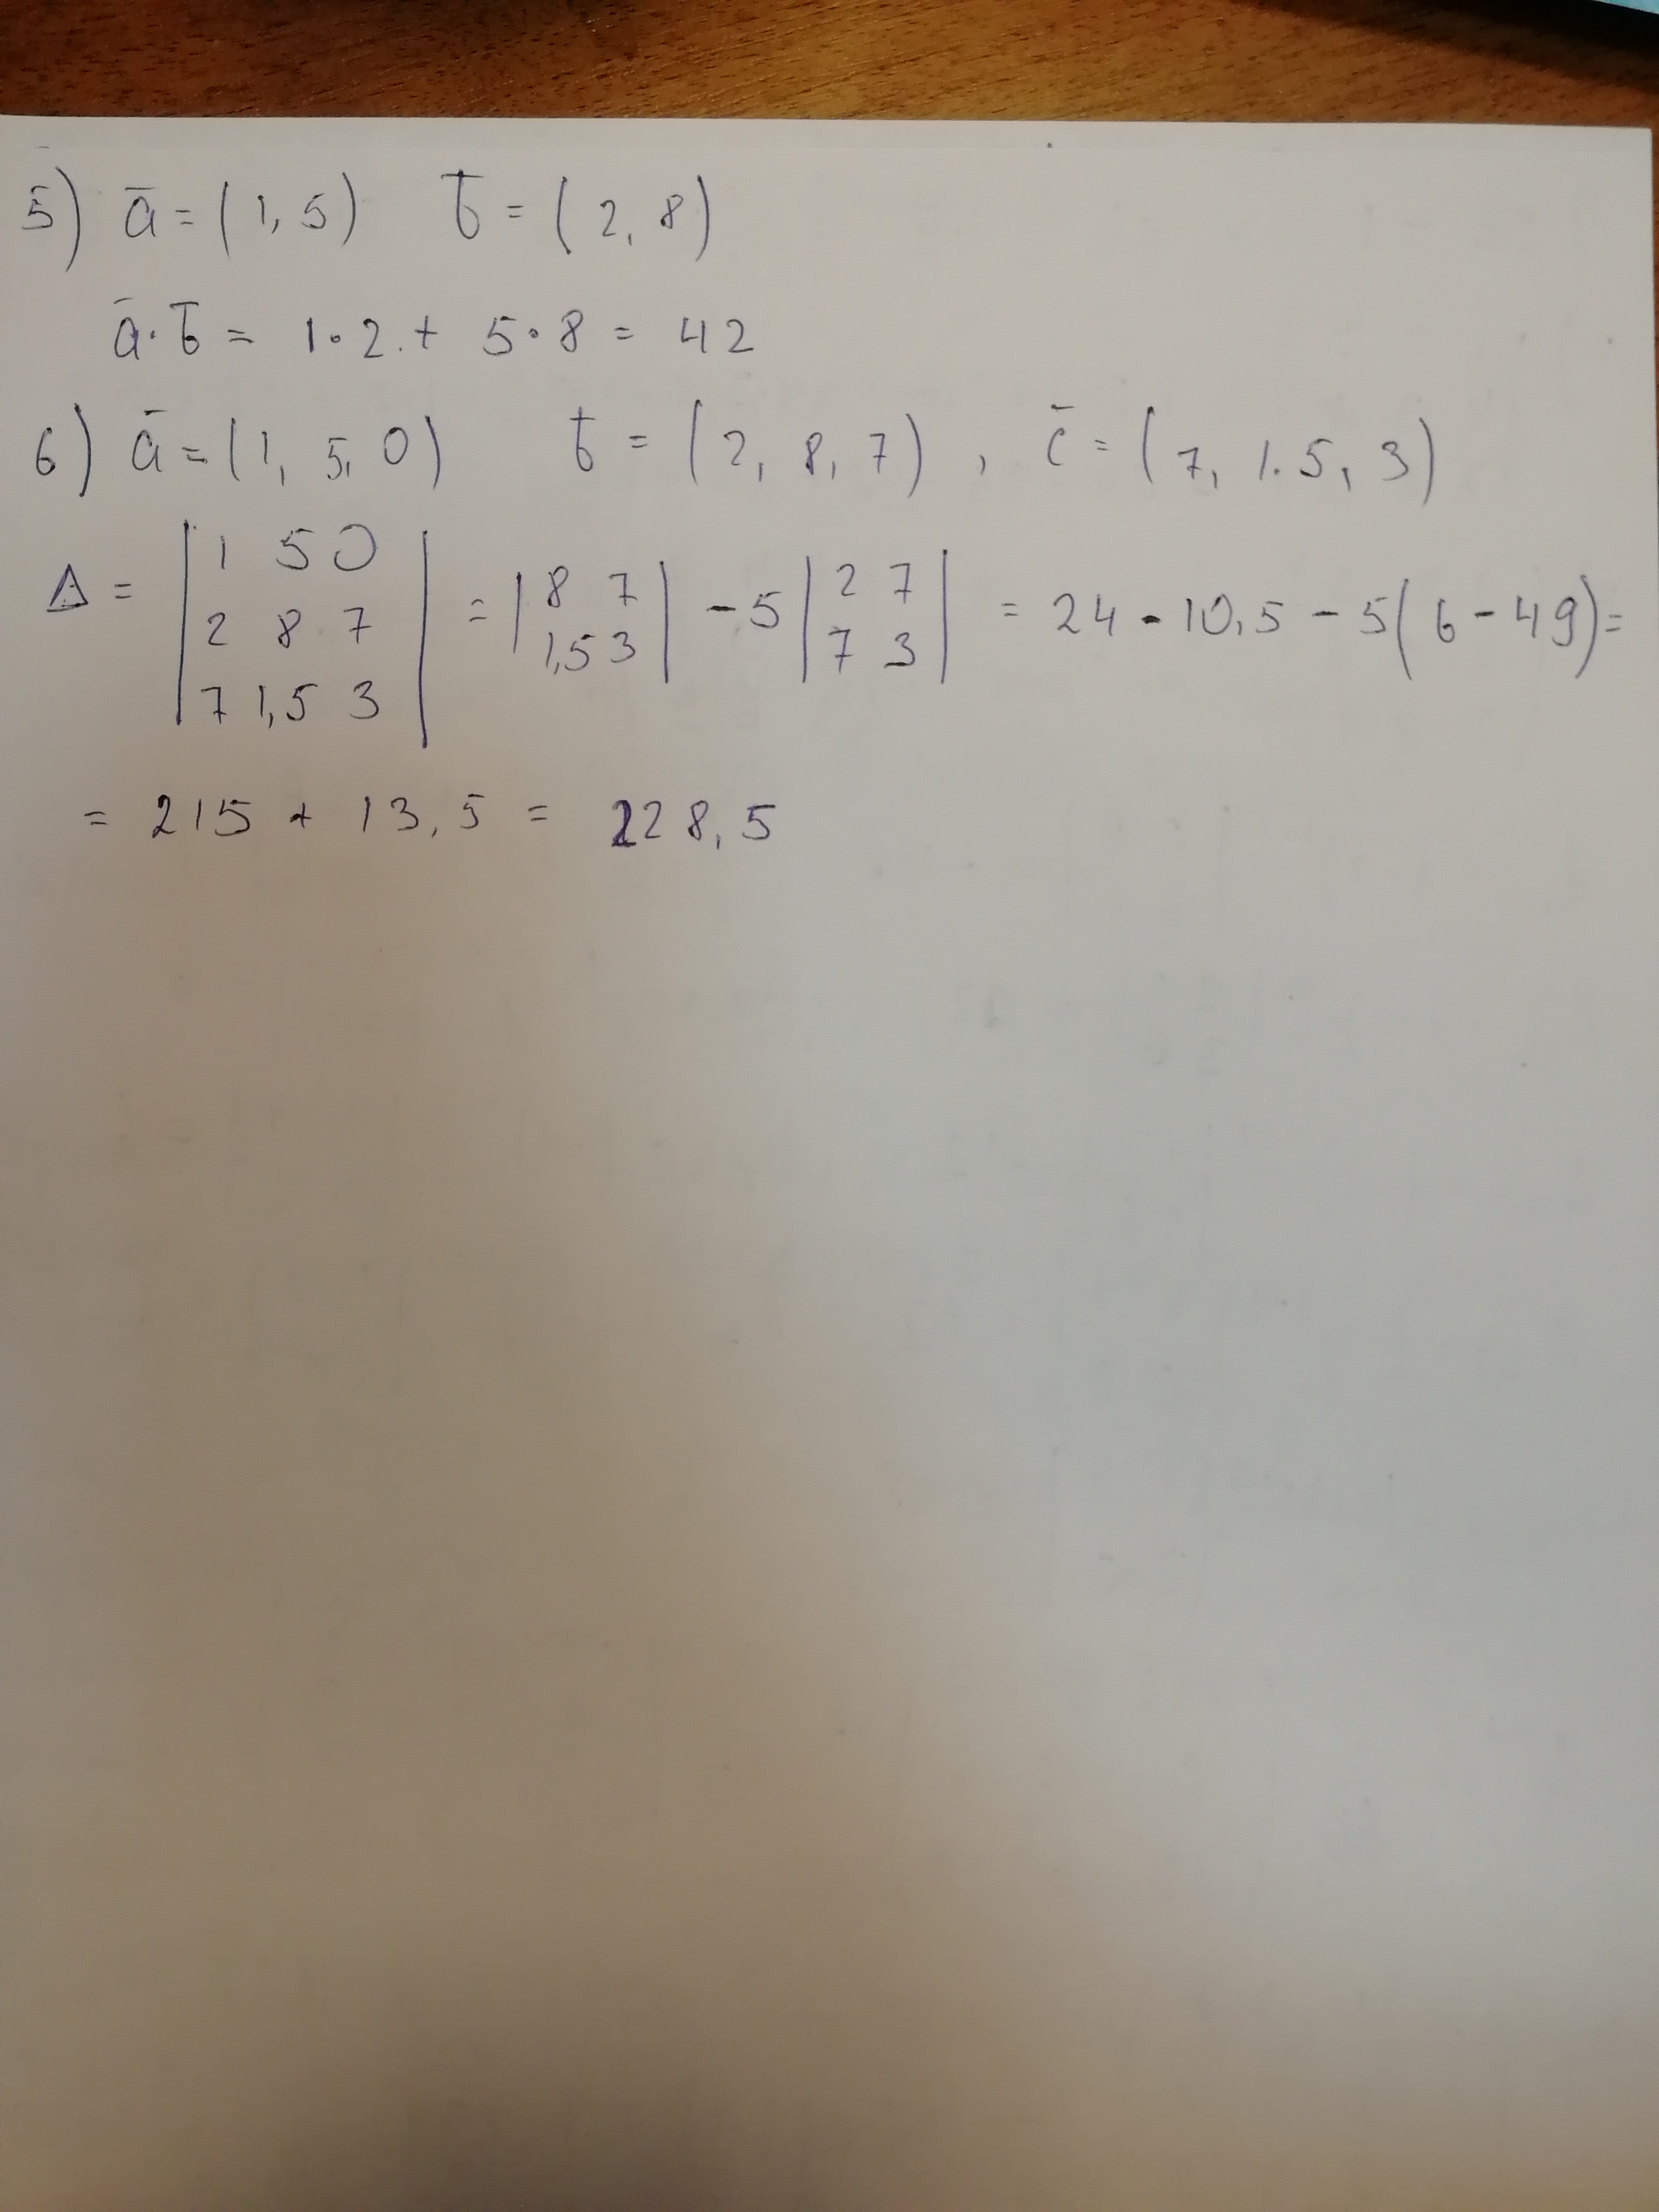 5) a̅ = (1, 5) b̅ = (2, 8)
a̅·b̅ = 1·2.+ 5·8 = 42
6) a̅ = (1, 5, 0) b̅ = (2, 8, 7) , c̅ = (7, 1.5, 3)
Δ = |1 5 0; 2 8 7; 7 1,5 3| = |8 7; 1,5 3| - 5|2 7; 7 3| = 24 - 10,5 - 5(6 - 49) =
= 215 + 13,5 = 228,5